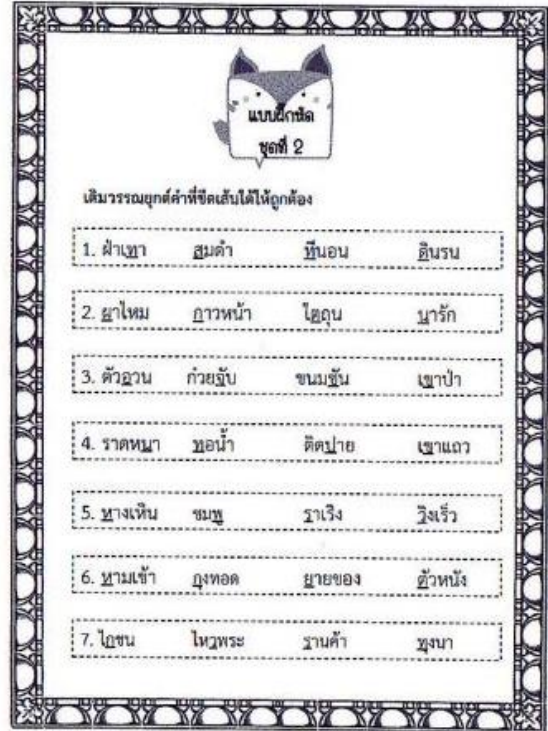 แบบฝึกหัด
ชุดที่ 2
เติมวรรณยุกต์คำที่ขีดเส้นใต้ให้ถูกต้อง
1. ฝ่าเทา สมตำ ทีนอน ดินรน
2. ผาไหม กาวหน้า ใตถุน นารัก
3. ตัวอวน ก๋วยจับ ขนมชัน เขาป่า
4. ราดหนา ทอน้ำ ติดปาย เขาแถว
5. หางเหิน ชมพู ราเริง วิงเร็ว
6. หามเข้า กุงทอด ยายของ ตัวหนัง
7. ไกชน ไหวพระ รานค้า ทุงนา